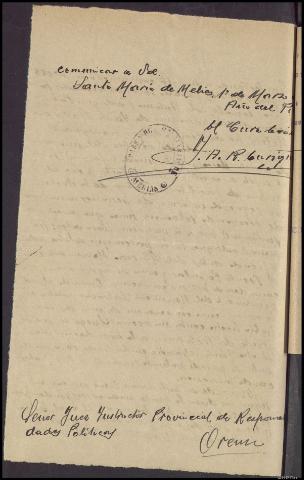 comunicar a Vd.
Santa María de Melias 1º de Marzo
Año del
El Cura
Señor Juez Instructor Provincial de Responsa
dades Políticas
Orense